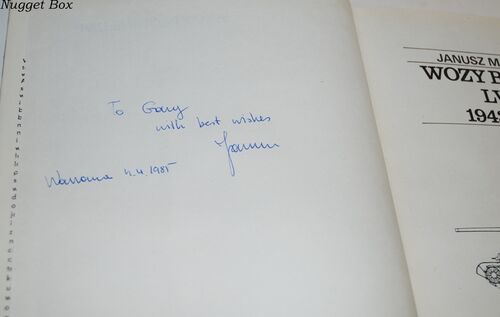 Nugget Box
To Gary
with best wishes
Warszawa 4.4.1985
JANUSZ M
WOZY B
LW
194